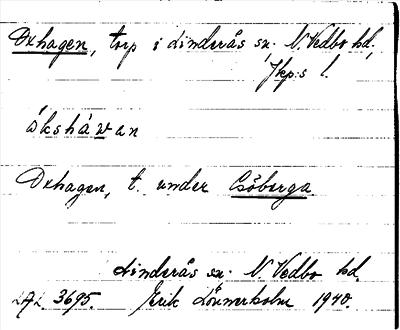 Oxhagen, torp i Linderås sn. N. Vedbo hd,
Jkp:s l.
ókshávan
Oxhagen, t. under Esåberga
Linderås sn. N. Vedbo hd.
3695. Erik Lönnerholm 1940.